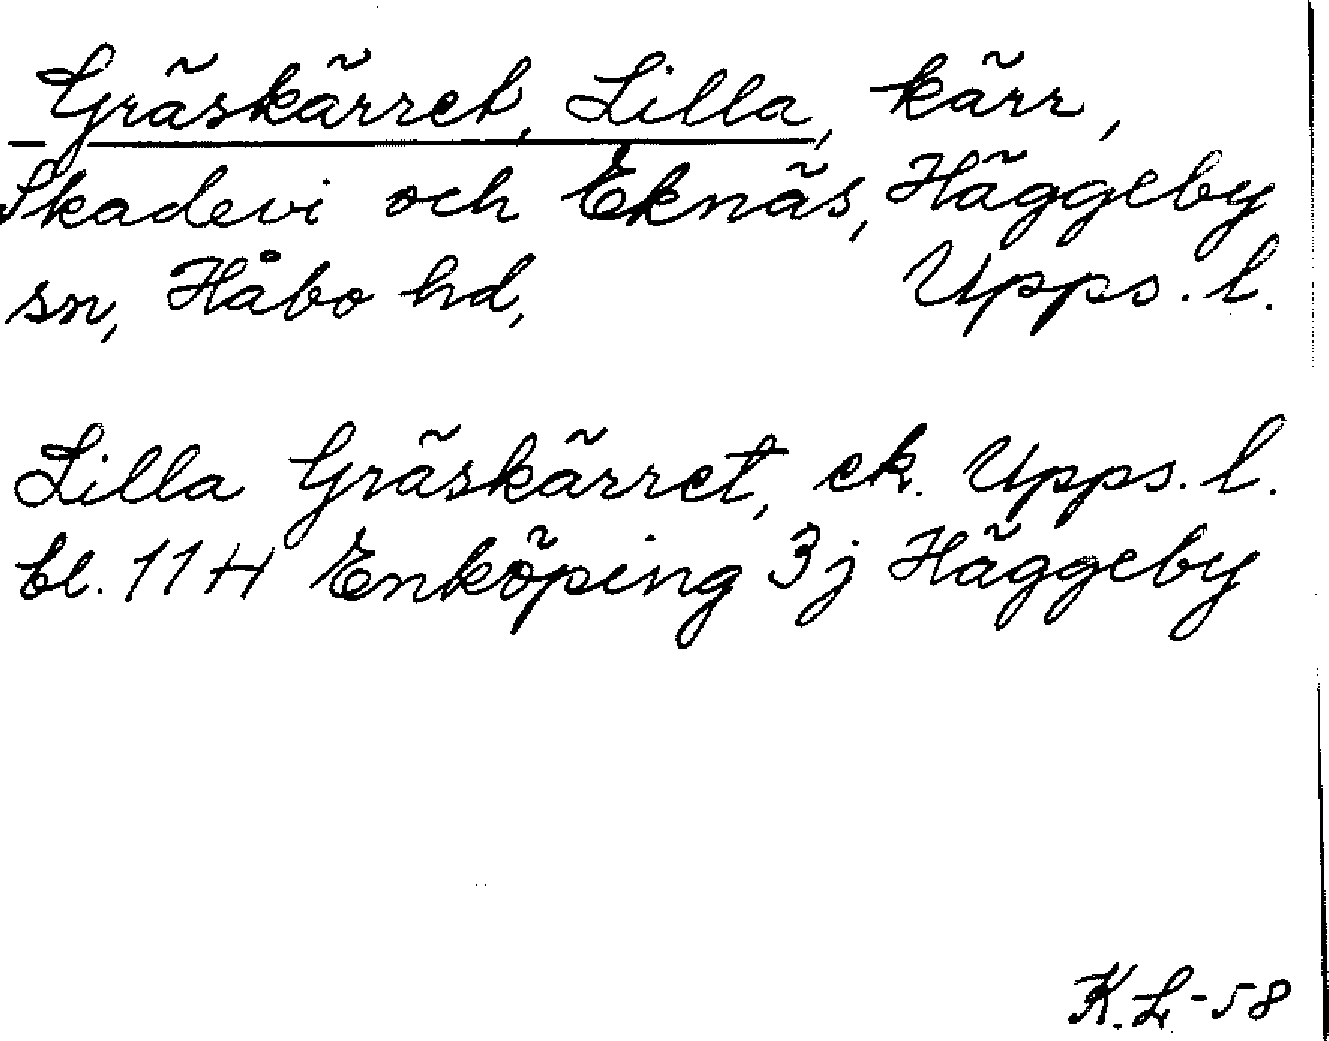 Gräskärret, Lilla, kärr,
Skadevi och Eknäs, Häggeby
sn, Håbo hd, Upps. l.
Lilla Gräskärret, ek. Upps. l.
bl. 11H Enköping 3j Häggeby
K.L-58